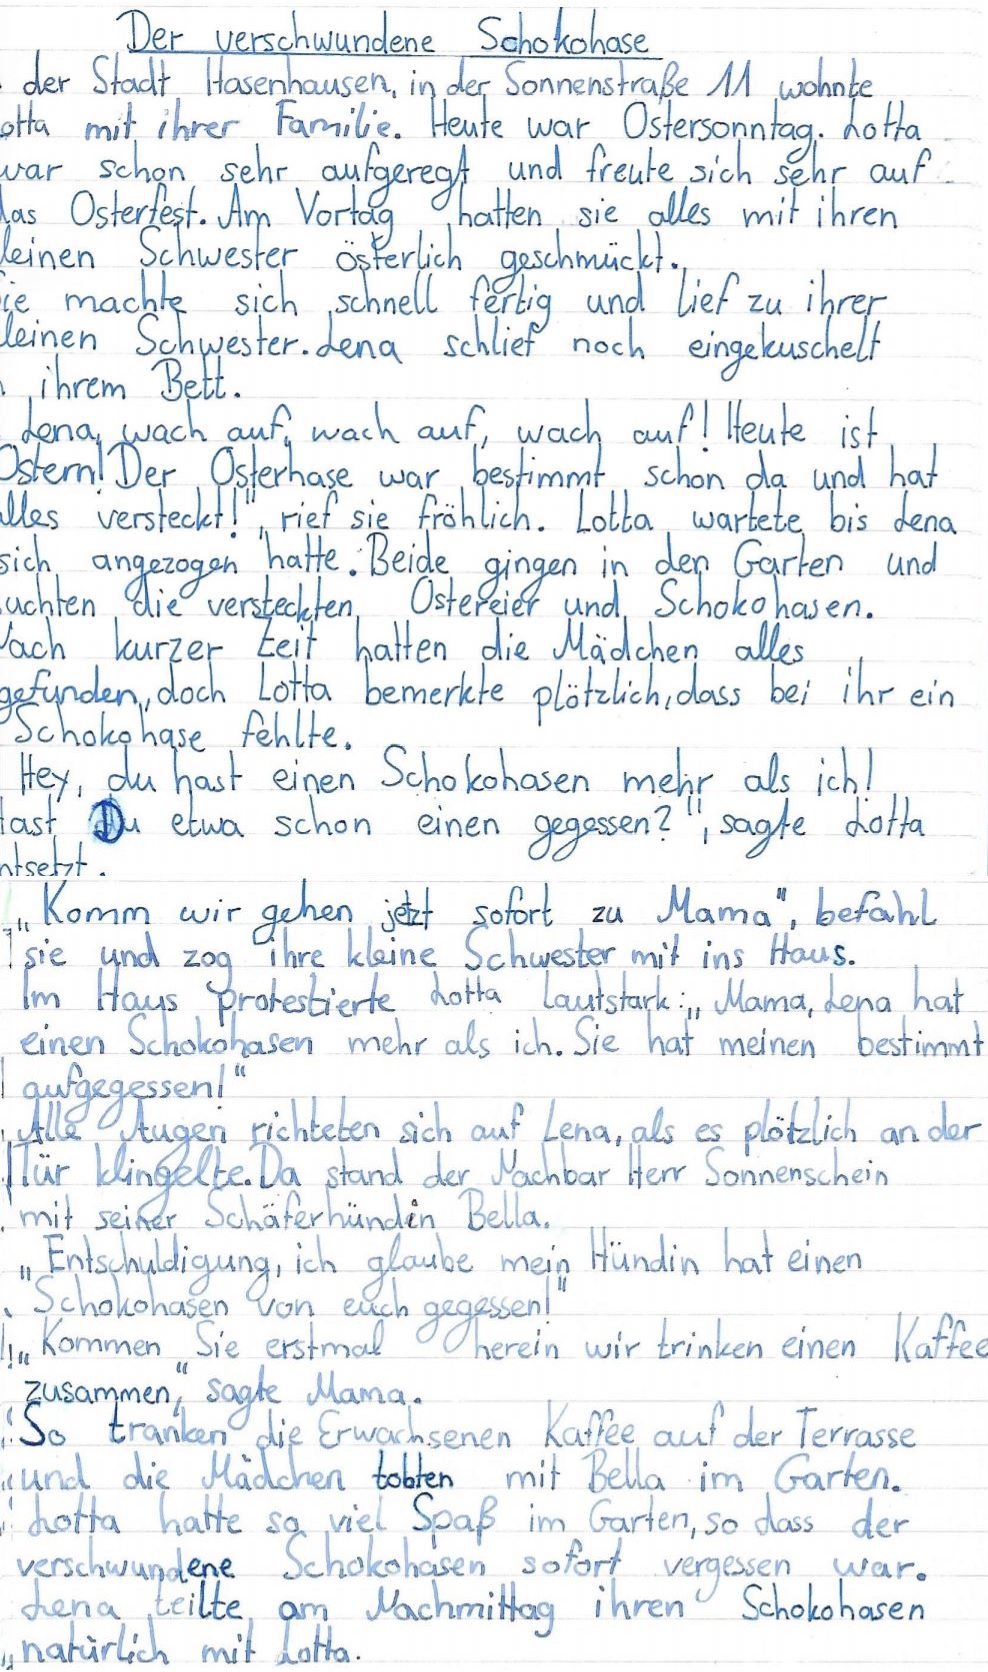 Der verschwundene Schokohase
der Stadt Hasenhausen, in der Sonnenstraße 11 wohnte
otta mit ihrer Familie. Heute war Ostersonntag. Lotta
war schon sehr aufgeregt und freute sich sehr auf
das Osterfest. Am Vortag hatten sie alles mit ihren
leinen Schwester österlich geschmückt.
ie machte sich schnell fertig und lief zu ihrer
leinen Schwester. Lena schlief noch eingekuschelt
ihrem Bett.
Lena, wach auf, wach auf, wach auf! Heute ist
Ostern! Der Osterhase war bestimmt schon da und hat
alles versteckt!", rief sie fröhlich. Lotta wartete bis Lena
sich angezogen hatte. Beide gingen in den Garten und
uchten die versteckten Ostereier und Schokohasen.
Nach kurzer Zeit hatten die Mädchen alles
gefunden, doch Lotta bemerkte plötzlich, dass bei ihr ein
Schokohase fehlte.
Hey, du hast einen Schokohasen mehr als ich!
Hast Du etwa schon einen gegessen?", sagte Lotta
ntsetzt.
„Komm wir gehen jetzt sofort zu Mama", befahl
sie und zog ihre kleine Schwester mit ins Haus.
Im Haus protestierte Lotta lautstark: „Mama, Lena hat
einen Schokohasen mehr als ich. Sie hat meinen bestimmt
aufgegessen!"
Alle Augen richteten sich auf Lena, als es plötzlich an der
Tür klingelte. Da stand der Nachbar Herr Sonnenschein
mit seiner Schäferhündin Bella.
„Entschuldigung, ich glaube mein Hündin hat einen
Schokohasen von euch gegessen!"
„Kommen Sie erstmal herein wir trinken einen Kaffee
zusammen", sagte Mama.
So tranken die Erwachsenen Kaffee auf der Terrasse
und die Mädchen tobten mit Bella im Garten.
Lotta hatte so viel Spaß im Garten, so dass der
verschwundene Schokohasen sofort vergessen war.
Lena teilte am Nachmittag ihren Schokohasen
natürlich mit Lotta.